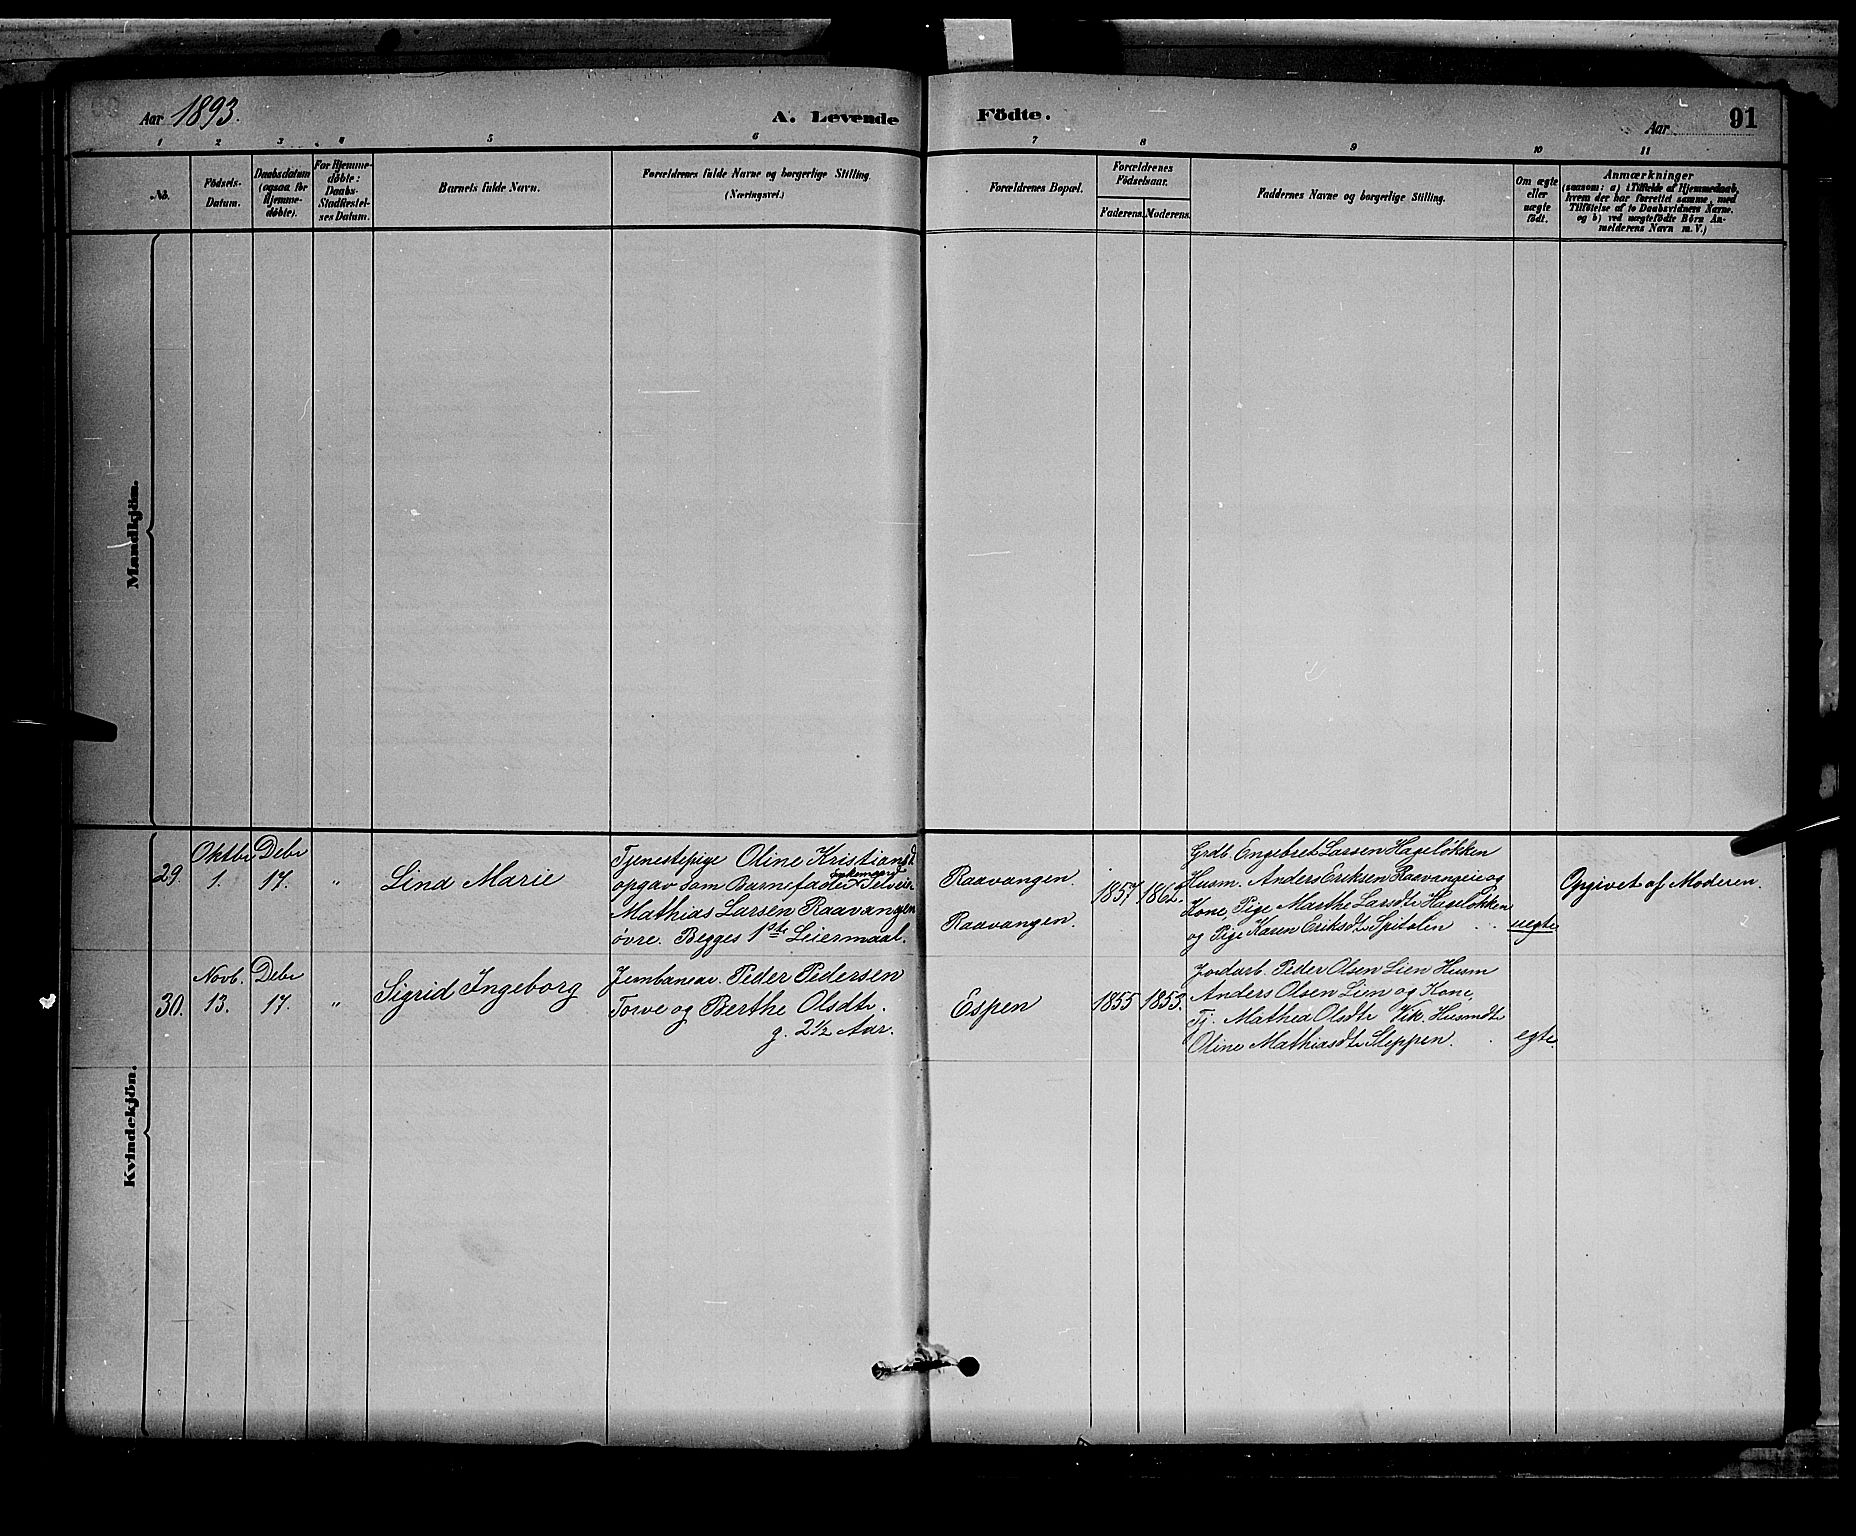 Aar 1893.
A. Levende Födte.
Aar
91
1 2 3 4 5 6 7 8 9 10 11
No.
Födsels-
Datum.
Daabsdatum
(ogsaa for
Hjemme-
døbte).
For Hjemme-
døbte:
Daabs-
Stadfæstel-
ses Datum.
Barnets fulde Navn.
Forældrenes fulde Navne og borgerlige Stilling
(Næringsvei.)
Forældrenes Bopæl.
Forældrenes
Födselsaar.
Faderens. Moderens.
Faddernes Navne og borgerlige Stilling.
Om ægte
eller
uægte
født.
Anmærkninger
(saasom: a) i Tilfælde af Hjemmedaab,
hvem der har forrettet samme, med
Tilföielse af to Daabsvidners Navne.
og b) ved uægtefödte Börn An-
melderens Navn m. V.)
Mandkjön.
Kvindekjön.
29.
Oktbr
1.
Debr
17.
"
Lina Marie
Tjenestepige Oline Kristiansd
opgav som Barnefader Selveier
Mathias Larsen Raavangen
øvre. Begges 1ste Leiermaal.
Raavangen.
Raavangen.
1857 1862.
Grdb. Engebret Larsen Hageløkken
Husm. Anders Eriksen Raavangeie og
Kone, Pige Marthe Larsdtr Hageløkken
og Pige Karen Eriksdtr Spitalen
uegte
Opgivet af Moderen.
30.
Novb.
13.
Debr
17.
"
Sigrid Ingeborg
Jernbanear. Peder Pedersen
Torve og Berthe Olsdtr.
g. 2½ Aar.
Espen
1855 1853.
Jordarb. Peder Olsen Lien Husm
Anders Olsen Lien og Kone,
Tj. Mathea Olsdtr Vik. Husmdtr
Oline Mathiasdtr Steppen.
egte.